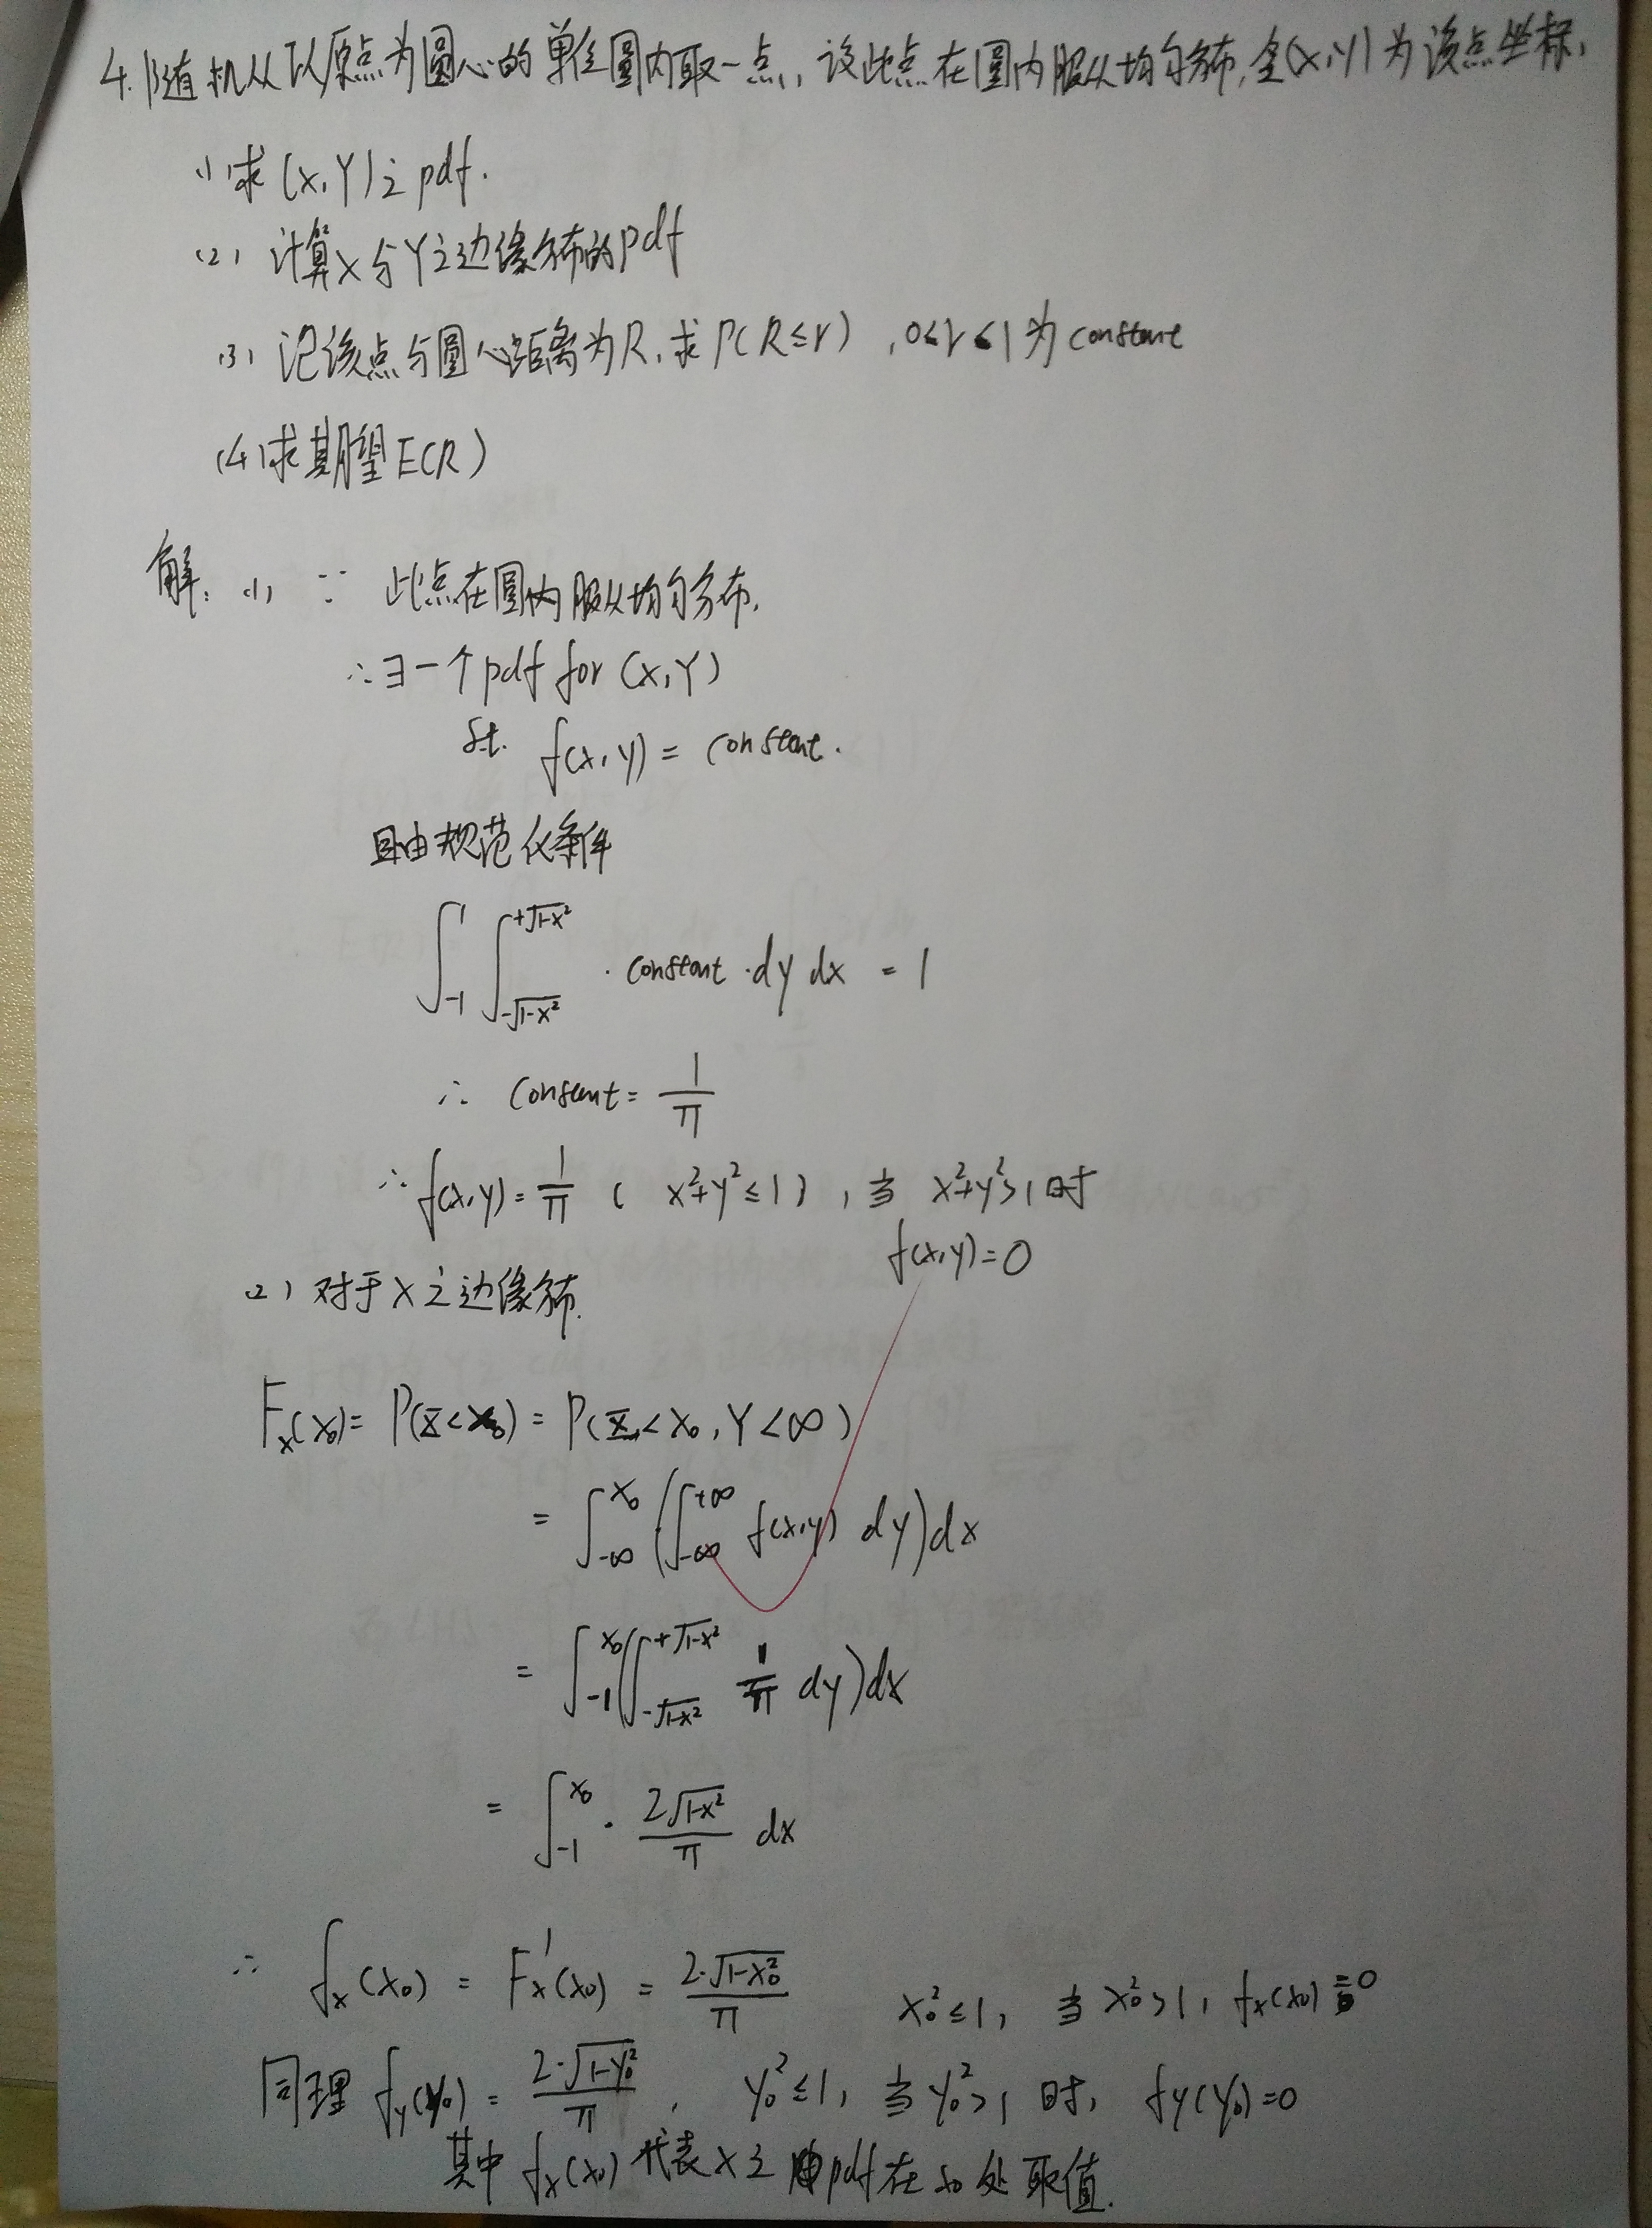 4.随机从以原点为圆心的单位圆内取一点,设此点在圆内服从均匀分布,令(X,Y)为该点坐标,
(1)求(X,Y)之pdf.
(2) 计算X与Y之边缘分布的pdf
(3) 记该点与圆心距离为R,求P(R≤r) ,0≤r≤1为constant
(4)求期望E(R)
解: (1) ∵ 此点在圆内服从均匀分布,
∴∃一个pdf for (X,Y)
s.t. f(x,y)= constant.
且由规范化条件
∫_{-1}^{1} ∫_{-√(1-x²)}^{+√(1-x²)} · constant · dy dx = 1
∴ constant = 1/π
∴ f(x,y)= 1/π ( x²+y²≤1 ) , 当 x²+y²>1时
f(x,y)=0
(2) 对于X之边缘分布.
F_X(x₀)= P(X<x₀) = P(X<x₀, Y<∞)
= ∫_{-∞}^{x₀} (∫_{-∞}^{+∞} f(x,y) dy)dx
= ∫_{-1}^{x₀} (∫_{-√(1-x²)}^{+√(1-x²)} 1/π dy)dx
= ∫_{-1}^{x₀} · 2√(1-x²)/π dx
∴ f_X(x₀) = F_X'(x₀) = 2·√(1-x₀²)/π x₀²≤1, 当 x₀²>1, f_X(x₀)=0
同理 f_Y(y₀) = 2·√(1-y₀²)/π , y₀²≤1, 当 y₀²>1 时, f_Y(y₀)=0
其中 f_X(x₀) 代表X之pdf在x₀处取值.